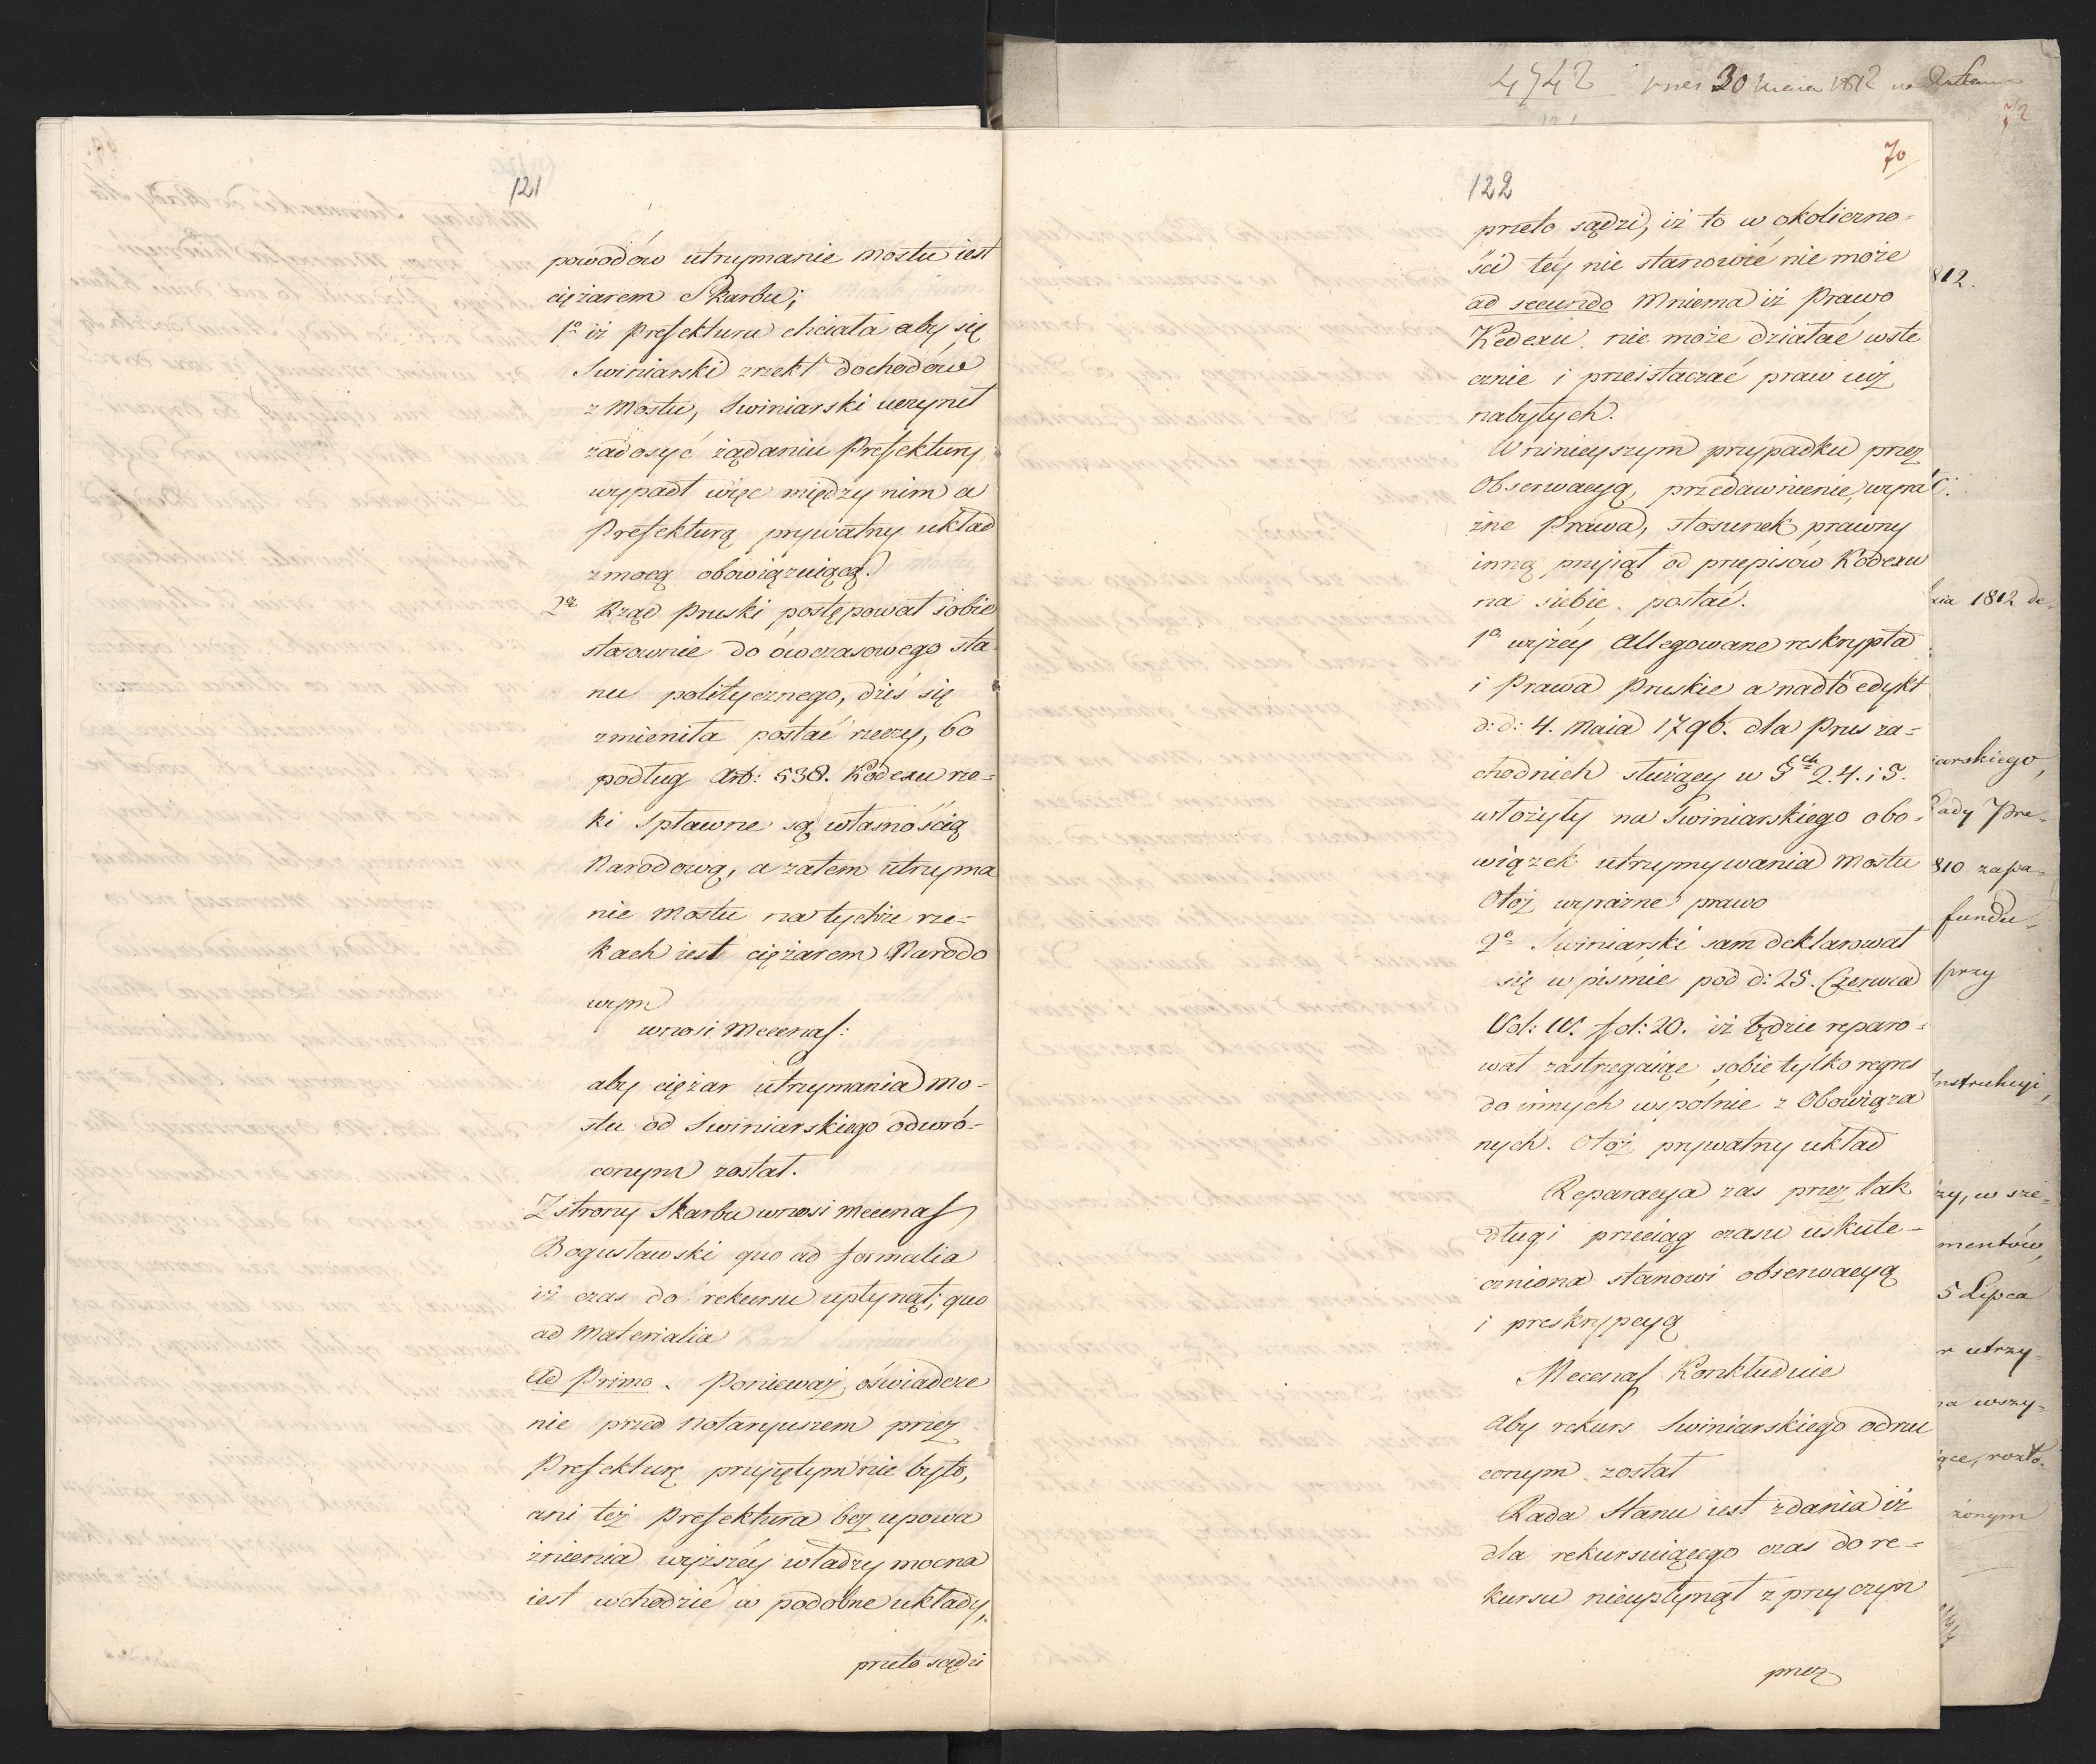 121
powodów utrzymanie mostu iest
ciężarem Skarbu;
1º iż Prefektura chciała aby się
Swiniarski zrzekł dochodów
z Mostu, Swiniarski uczynił
zadosyć żądaniu Prefektury
wypadł więc między nim a
Prefekturą prywatny układ
z mocą obowiązuiącą.
2º Rząd Pruski postępował sobie
stosownie do ówczasowego sta
nu politycznego, dziś się
zmieniła postać rzeczy, bo
podług Art: 538. Kodexu rze=
ki spławne są własnością
Narodową, a zatem utrzyma
nie Mostu na tychże rze=
kach iest ciężarem Narodo
wym
wnosi Mecenas:
aby ciężar utrzymania Mo-
stu od Swiniarskiego odwró-
conym został.
Z strony Skarbu wnosi Mecenas
Bogusławski quo ad formalia
iż czas do rekursu upłynął; quo
ad Materialia
Ad Primo. Ponieważ oświadcze
nie przed Notaryuszem przez
Prefekturę przyjętym nie było,
ani też Prefektura bez upowa
żnienia wyższéy władzy mocna
iest wchodzić w podobne układy,
przeto sądzi
70
122
przeto sądzi, iż to w okoliczno=
ści téy nie stanowić nie może
ad secundo Mniema iż Prawo
Kodexu nie może działać wste
cznie i przeistaczać praw iuż
nabytych.
W niniéyszym przypadku przez
Obserwacyą, przedawnienie, wyra
źne Prawa, stosunek prawny
inną przyiął od przepisów Kodexu
na siebie postać.
1º wyżéy allegowane reskrypta
i Prawa Pruskie a nadto edykt
d: d: 4. Maia 1796. dla Prus za=
chodnich służący w §ch 2. 4. i 5.
włożyły na Swiniarskiego obo=
wiązek utrzymywania Mostu
Otóż wyraźne prawo
2º Swiniarski sam deklarował
się w piśmie pod d: 25. Czerwca
Vol: IV. fol: 20. iż będzie reparo=
wał zastrzegaiąc sobie tylko regres
do innych wspólnie z Obowiąza
nych. Otóż prywatny układ
Reparacya zas przez tak
długi przeciąg czasu uskute-
czniona stanowi obserwacyą
i preskrypcyą
Mecenas Konkluduie
Aby rekurs Swiniarskiego odrzu
conym został
Rada Stanu iest zdania iż
dla rekursuiącego czas do re=
kursu nieupłynął z przyczyn
przez
4742 30 1812
72
812.
1812 de-
iarskiego,
Rady Pre-
810 zapa-
fundu-
przy
Instrukcyi,
zy, w sze-
mentów,
5 Lipca
r utrzy-
na wszy-
ące, rozło-
żonym